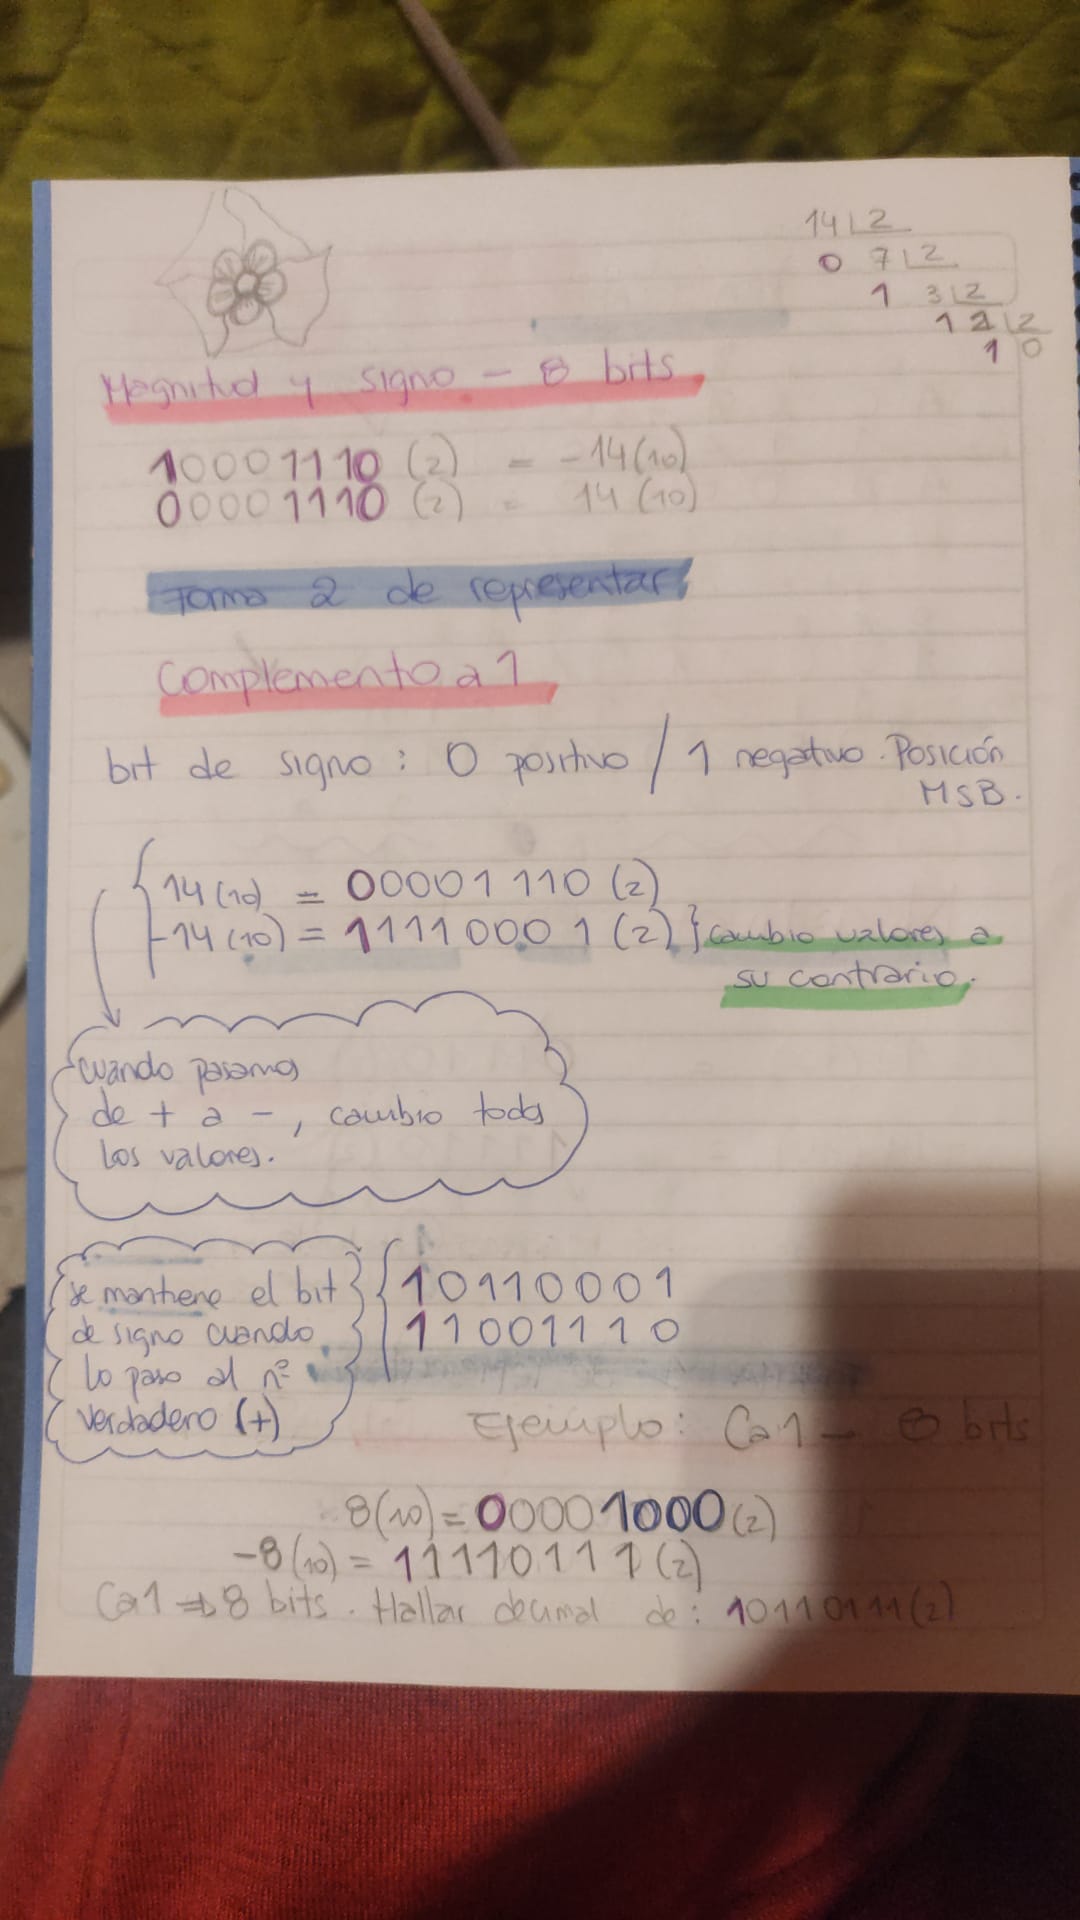 14 2
0 7 2
1 3 2
1 1 2
1 0
Magnitud y signo - 8 bits
10001110 (2) = -14 (10)
00001110 (2) = 14 (10)
Forma 2 de representar
Complemento a 1
bit de signo: 0 positivo / 1 negativo. Posición
MSB.
14 (10) = 00001110 (2)
-14 (10) = 11110001 (2) } cambio valores a
su contrario.
cuando pasamos
de + a -, cambio todos
los valores.
se mantiene el bit
de signo cuando
lo paso al nº
verdadero (+)
10110001
11001110
Ejemplo: Ca1 - 8 bits
8 (10) = 00001000 (2)
-8 (10) = 11110111 (2)
Ca1 ⇒ 8 bits. Hallar decimal de: 10110111 (2)